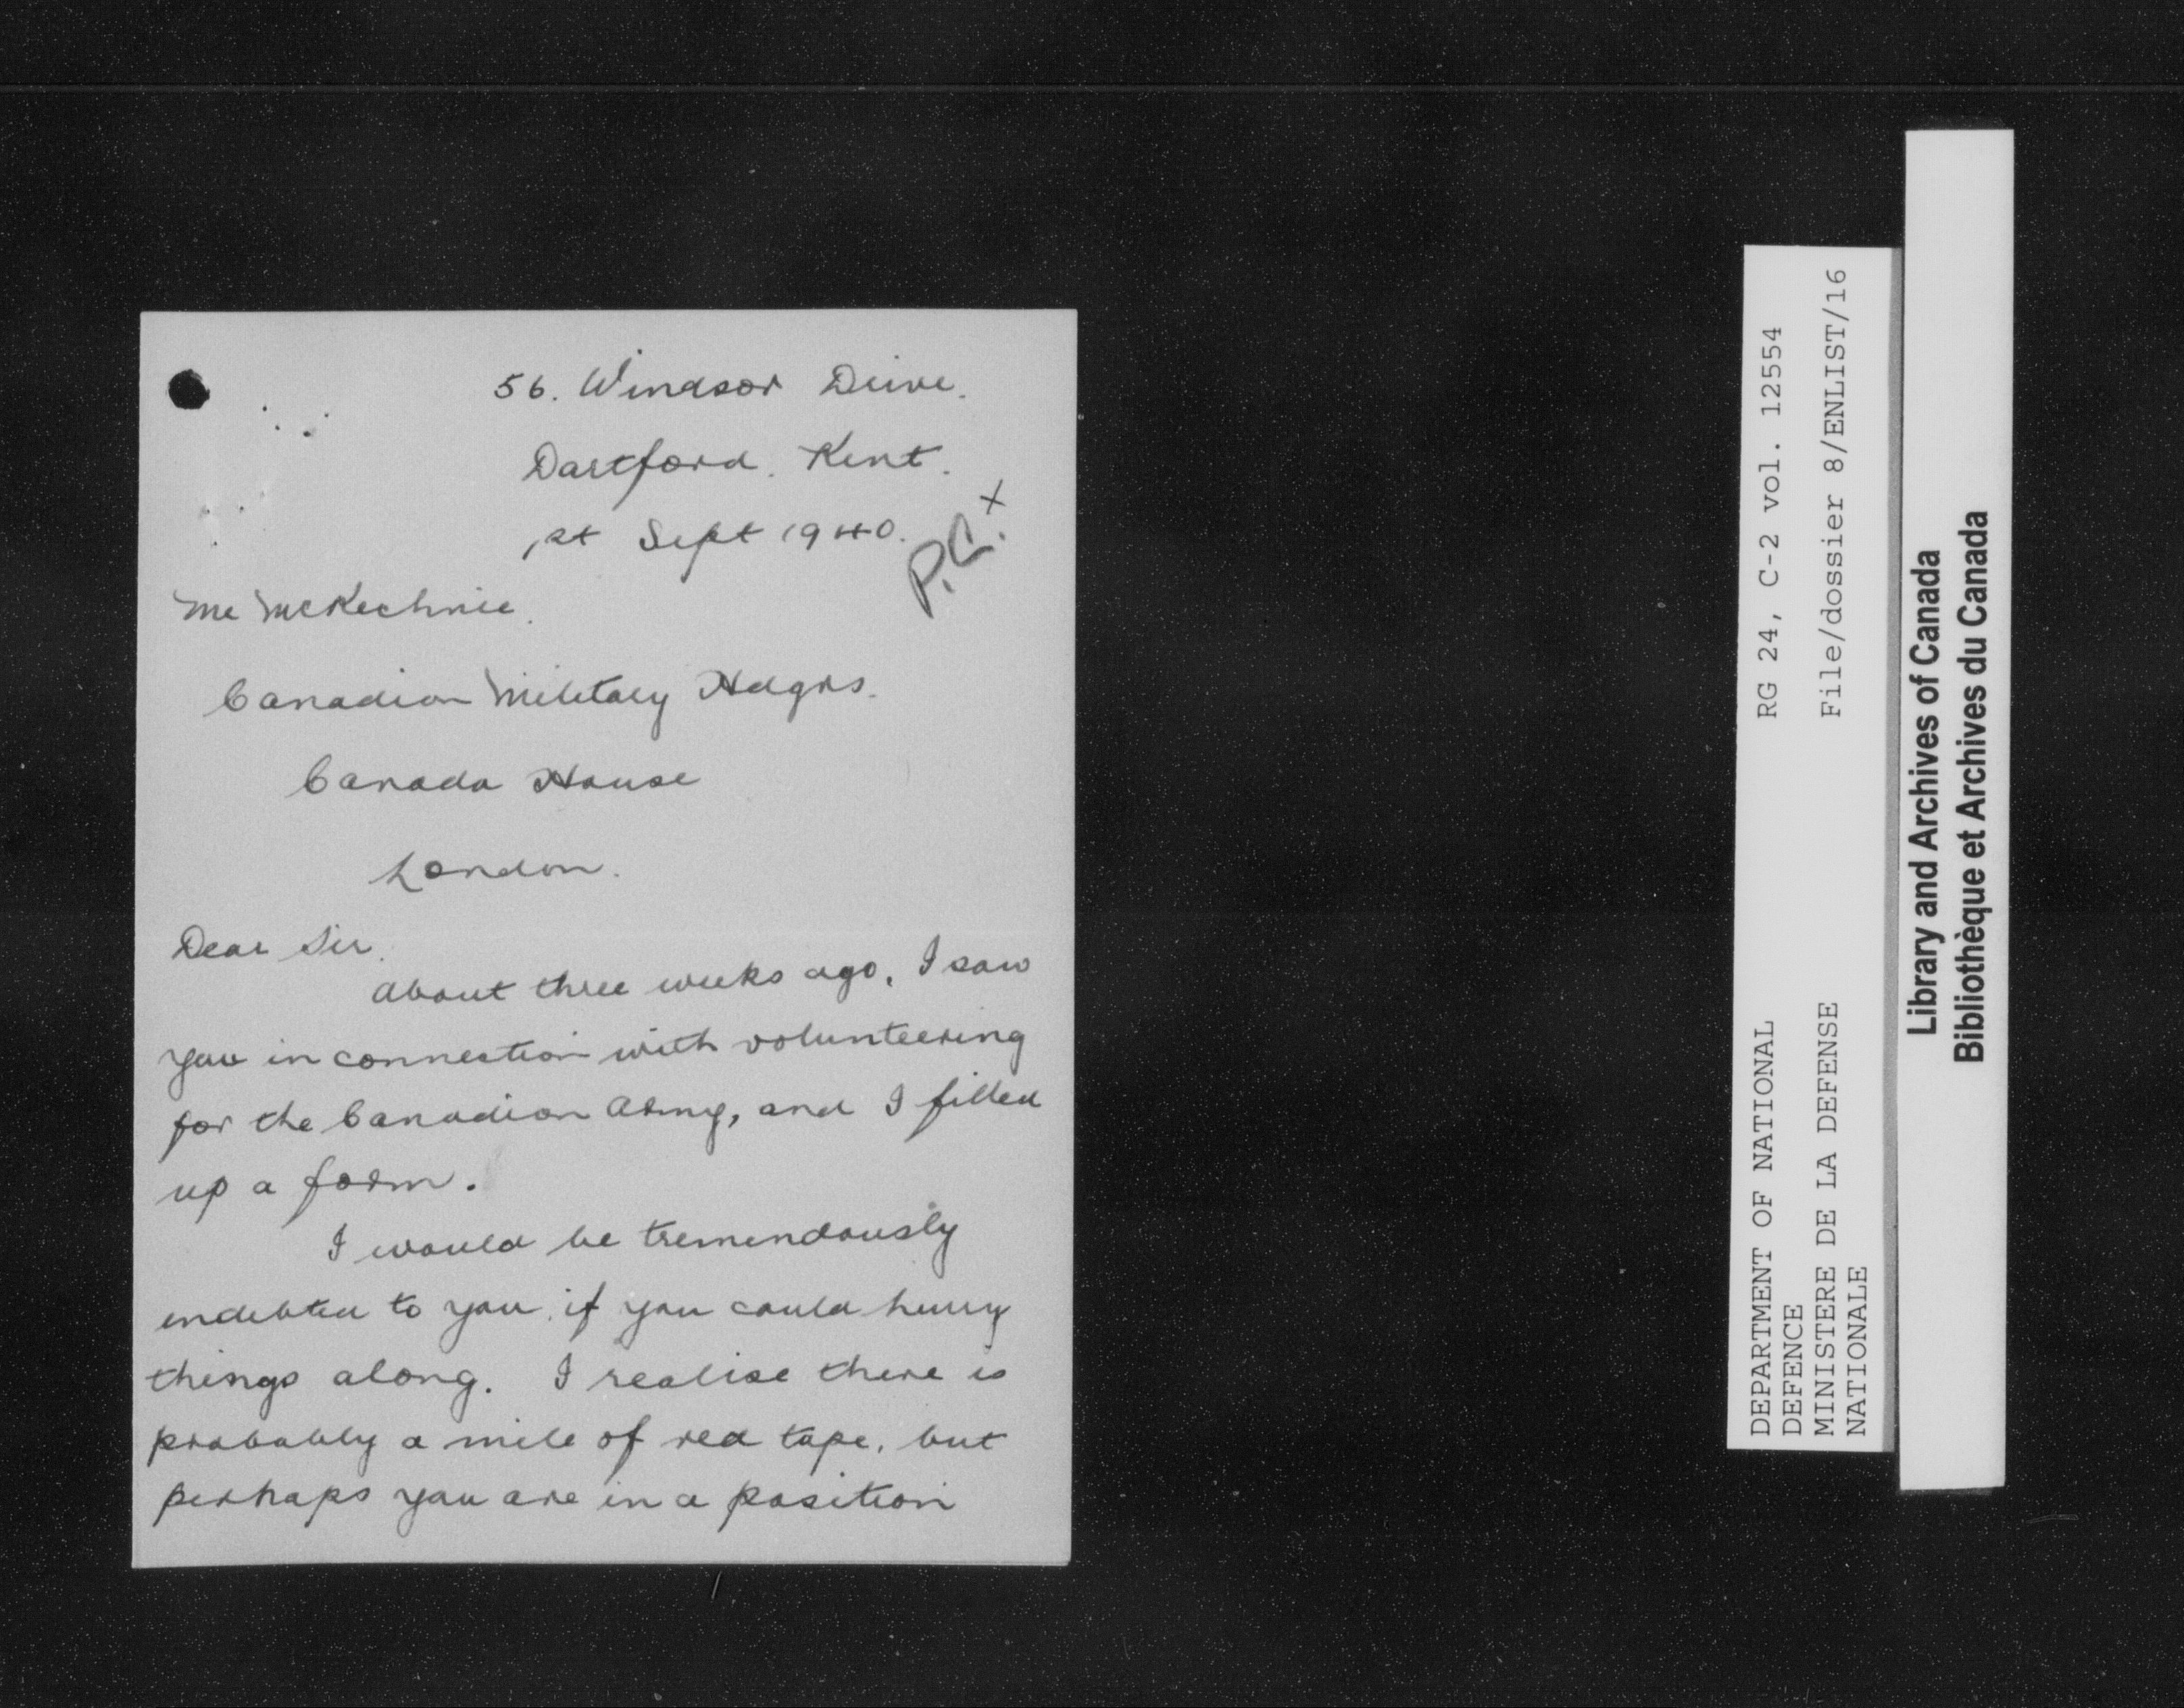 56. Windsor Drive.
Dartford. Kent.
1st Sept 1940.
P.A. +
Mr McKechnie.
Canadian Military Hdqrs.
Canada House
London.
Dear Sir.
About three weeks ago, I saw
you in connection with volunteering
for the Canadian Army, and I filled
up a form.
I would be tremendously
indebted to you, if you could hurry
things along. I realise there is
probably a mile of red tape, but
perhaps you are in a position
DEPARTMENT OF NATIONAL
DEFENCE
MINISTERE DE LA DEFENSE
NATIONALE
RG 24, C-2 vol. 12554
File/dossier 8/ENLIST/16
Library and Archives of Canada
Bibliothèque et Archives du Canada